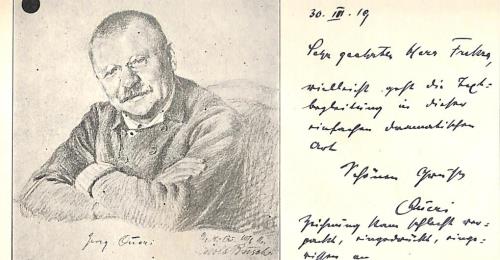 Georg Queri
30. III. 19
Sehr geehrter Herr Frekse,
vielleicht geht die Text-
begleitung in dieser
einfachen dramatischen
Art
Schönen Gruß
Queri
Zeichnung kam schlecht ver-
packt, eingedrückt, einge-
rissen an